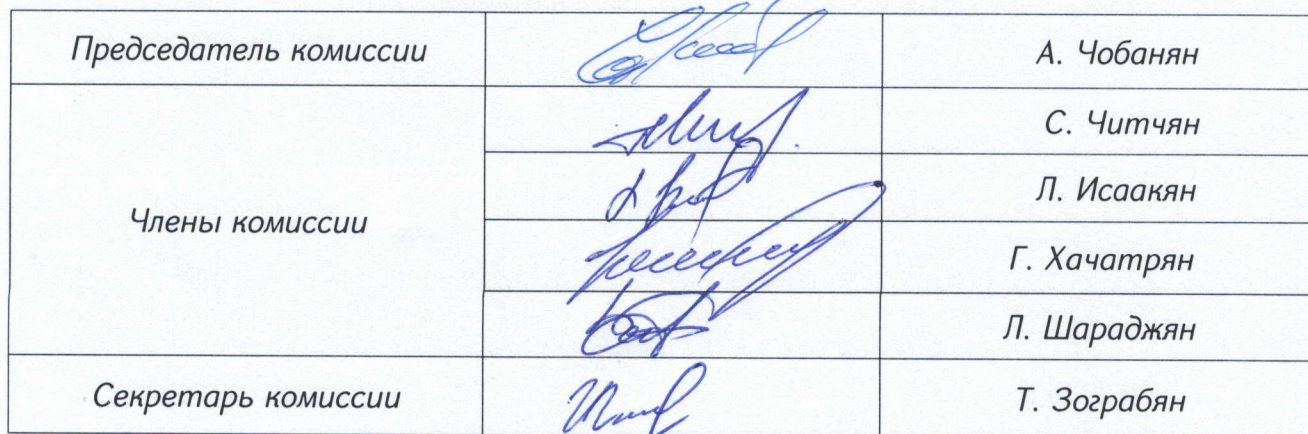 Председатель комиссии А. Чобанян
С. Читчян
Члены комиссии Л. Исаакян
Г. Хачатрян
Л. Шараджян
Секретарь комиссии Т. Зограбян